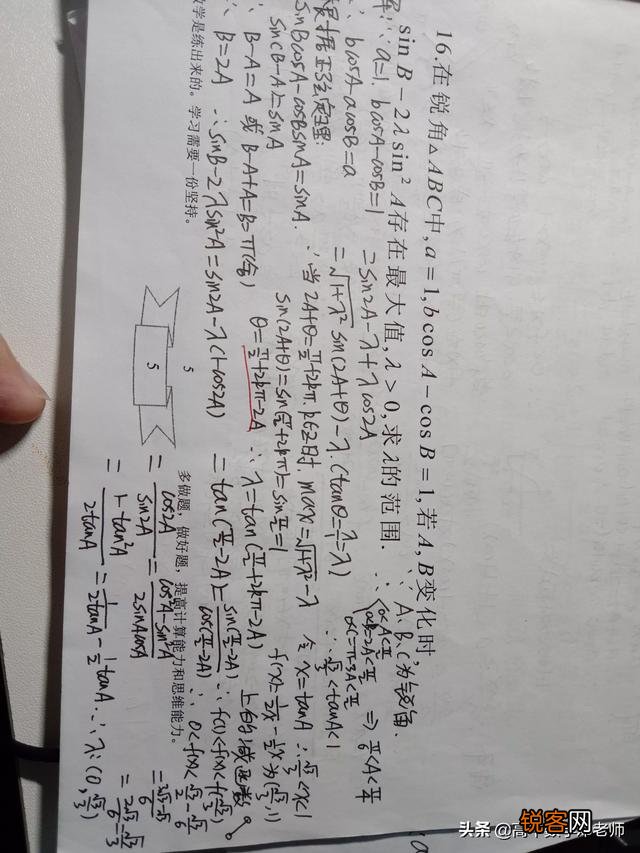 16.在锐角△ABC中,a=1,bcosA-cosB=1,若A,B变化时,
sinB-2λsin²A存在最大值,λ>0,求λ的范围.
∵a=1. bcosA-cosB=1
∴bcosA-acosB=a
根据正弦定理:
sinBcosA-cosBsinA=sinA.
sin(B-A)=sinA
∴B-A=A 或 B-A+A=B=π(舍)
∴B=2A ∴sinB-2λsin²A=sin2A-λ(1-cos2A)
=sin2A-λ+λcos2A
=√1+λ² sin(2A+θ)-λ.(tanθ=λ/1=λ)
∴当2A+θ=π/2+2kπ,k∈Z时. max=√1+λ²-λ
sin(2A+θ)=sin(π/2+2kπ)=sinπ/2=1
θ=π/2+2kπ-2A ∴λ=tan(π/2+2kπ-2A)
=tan(π/2-2A)=sin(π/2-2A)/cos(π/2-2A)
=cos2A/sin2A=cos²A-sin²A/2sinAcosA
=1-tan²A/2tanA=1/2tanA-1/2tanA ∴λ:(0,√3/3)
∵A、B、C为锐角.
0<A<π/2
0<B=2A<π/2
0<π-3A<π/2
⇒π/6<A<π/4
∴√3/3<tanA<1
令x=tanA ∴√3/3<x<1
f(x)=1/2x-1/2x为(√3/3,1)
上的减函数
∴f(1)<f(x)<f(√3/3)
∴0<f(x)<√3/2-√3/6
=3√3-√3/6
=2√3/6=√3/3
数学是练出来的。学习需要一份坚持。
5
5
多做题，做好题，提高计算能力和思维能力。
锐客网